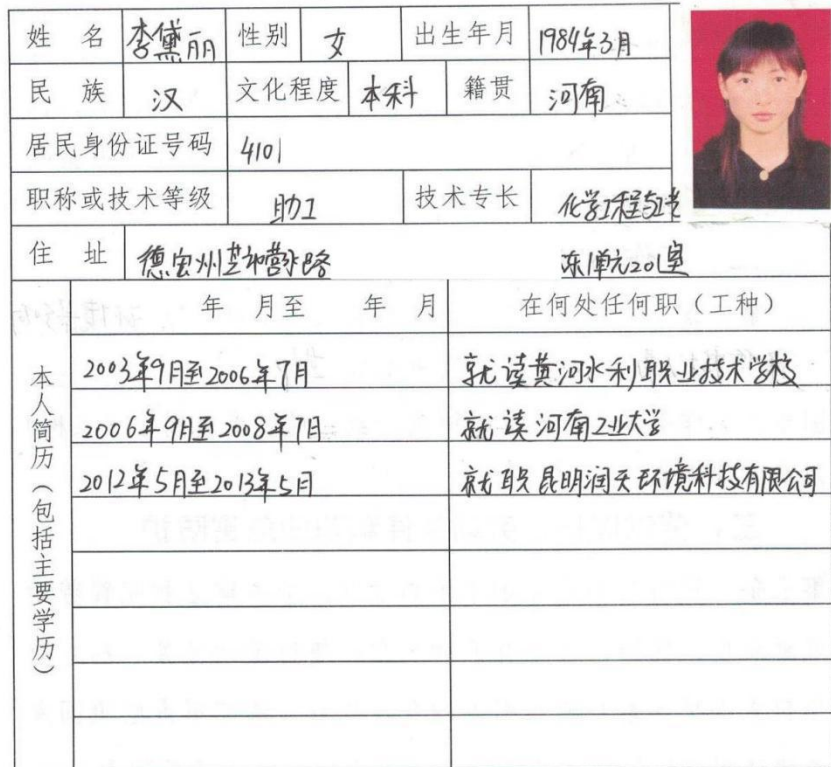 姓 名 李黛丽 性别 女 出生年月 1984年3月
民 族 汉 文化程度 本科 籍贯 河南
居民身份证号码 4101
职称或技术等级 助工 技术专长 化学工程与工艺
住 址 德宏州芒市 路 东1单元201室
年 月至 年 月 在何处任何职（工种）
本人简历（包括主要学历）
2003年9月至2006年7月 就读黄河水利职业技术学校
2006年9月至2008年7月 就读河南工业大学
2012年5月至2013年5月 就职昆明润天环境科技有限公司